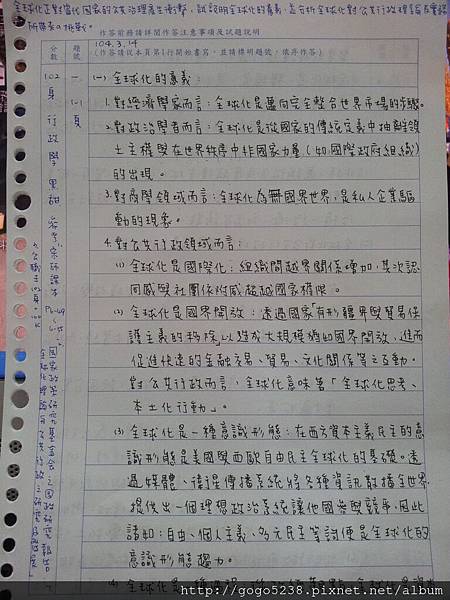 全球化正對當代國家的公共治理產生衝擊，試說明全球化的意義，並分析全球化對公共行政理論與實務
所帶來的挑戰。
作答前務請詳閱作答注意事項及試題說明
分數
題號
104.3.14
(作答請從本頁第1行開始書寫，並請標明題號，依序作答)
一
(一) 全球化的意義：
1.對經濟學家而言：全球化是邁向完全整合世界市場的步驟。
2.對政治學者而言：全球化是從國家的傳統定義中抽離領
土主權與在世界秩序中非國家力量(如：國際政府組織)
的出現。
3.對商學領域而言：全球化為無國界世界，是私人企業驅
動的現象。
4.對公共行政領域而言：
(1) 全球化是國際化：組織間越界關係增加，其次認
同感與社團依附感超越國家權限。
(2) 全球化是國界開放：透過國家「有形疆界與貿易保
護主義的移除」以造成大規模的國界開放，進而
促進快速的金融交易、貿易、文化關係等之互動。
對公共行政而言，全球化意味著「全球化思考、
本土化行動」。
(3) 全球化是一種意識形態：在西方資本主義民主的意
識形態是美國與西歐自由民主全球化的基礎。透
過媒體、資訊傳播系統將各種資訊散播全世界
提供出一個理想政治系統讓他國參與競爭。因此
諸如：自由、個人主義、多元民主等詞便是全球化的
意識形態趨力。
102
頁
行
政
學
http://gogo5238.pixnet.net/album